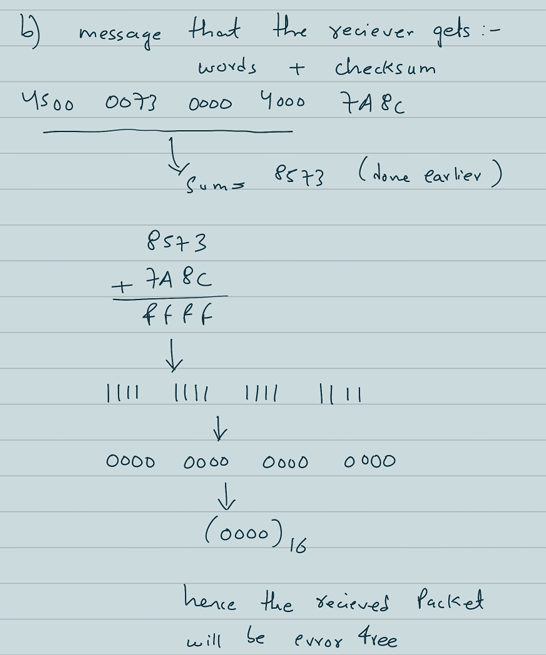 b) message that the reciever gets :-
words + checksum
4500 0073 0000 4000 7A8C
Sum= 8573 (done earlier)
8573
+ 7A8C
ffff
1111 1111 1111 1111
0000 0000 0000 0000
(0000)16
hence the recieved Packet
will be error free